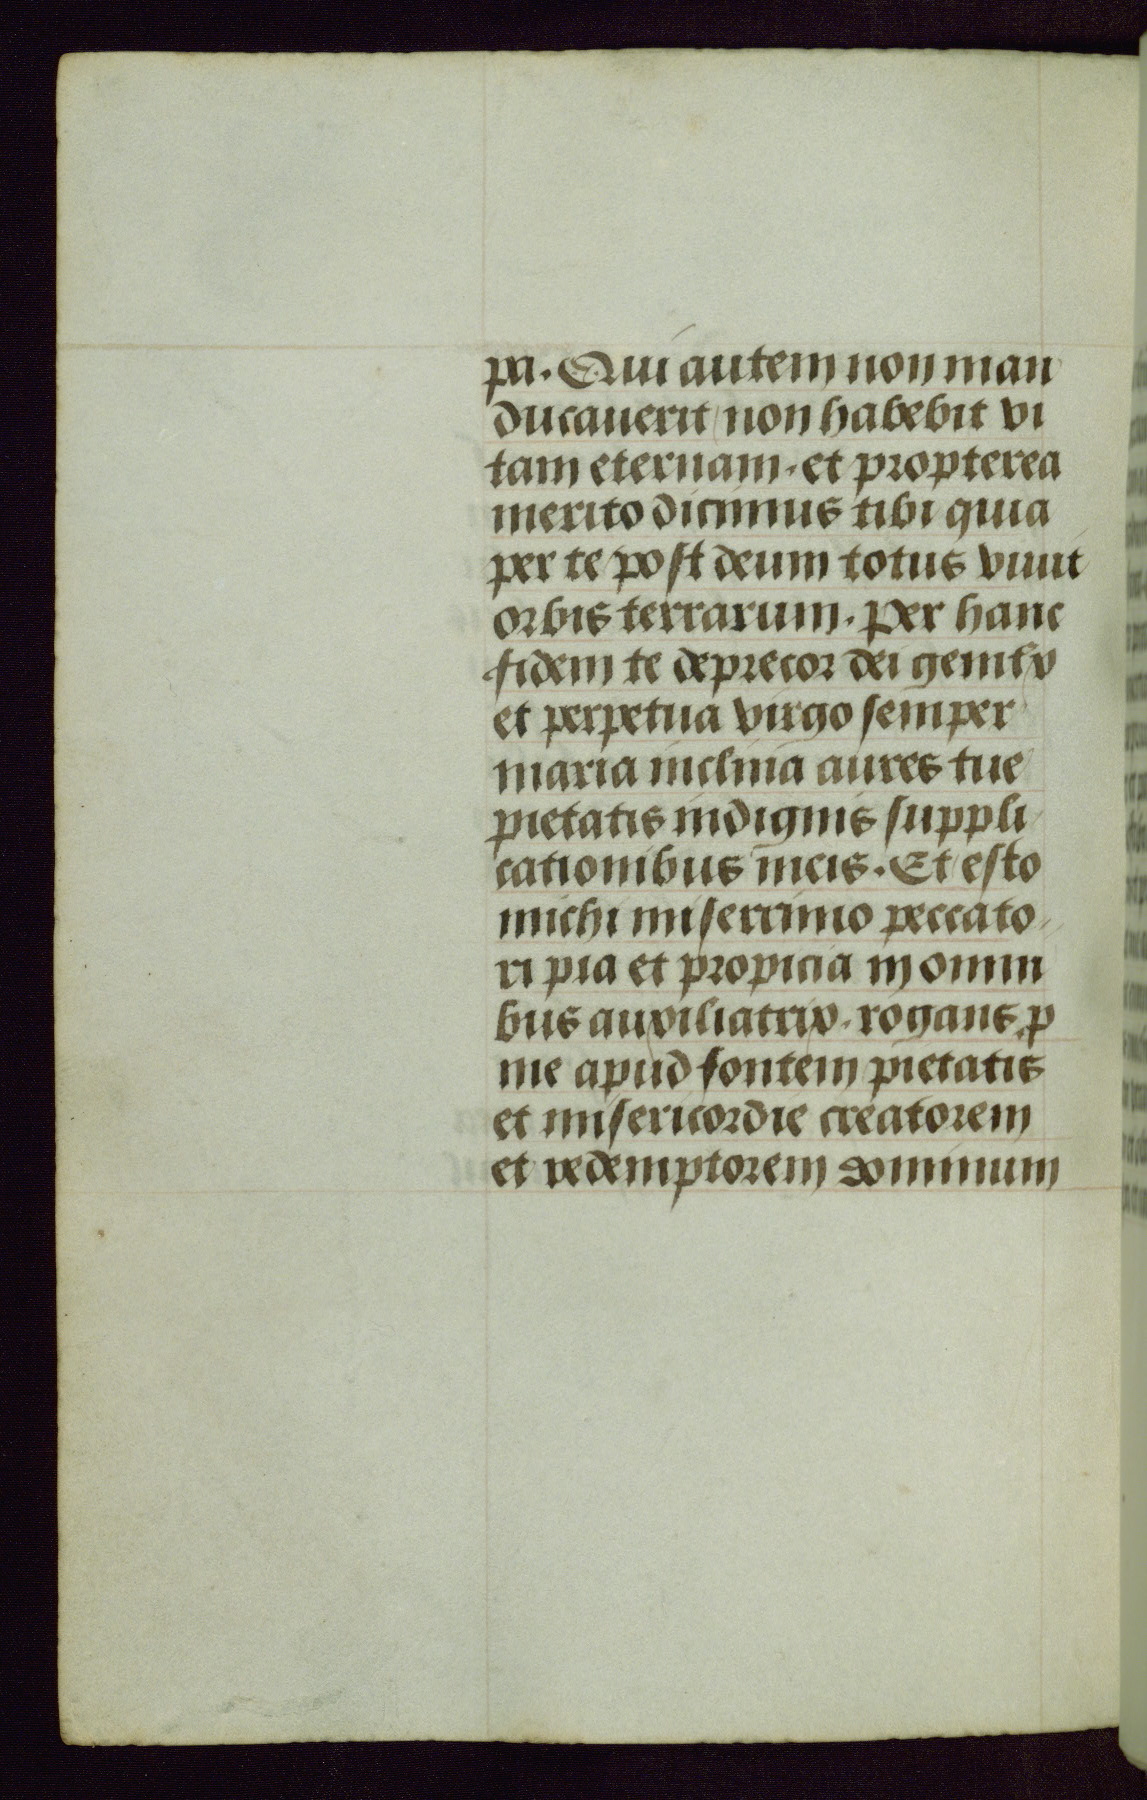 pa. Qui autem non man
ducauerit non habebit vi
tam eternam. et propterea
merito dicimus tibi quia
per te post deum totus viuit
orbis terrarum. Per hanc
fidem te deprecor dei genitrix
et perpetua virgo semper
maria inclina aures tue
pietatis indignis suppli
cationibus meis. Et esto
michi miserrimo peccato
ri pia et propicia in omni
bus auxiliatrix. rogans ꝓ
me apud fontem pietatis
et misericordie creatorem
et redemptorem dominum